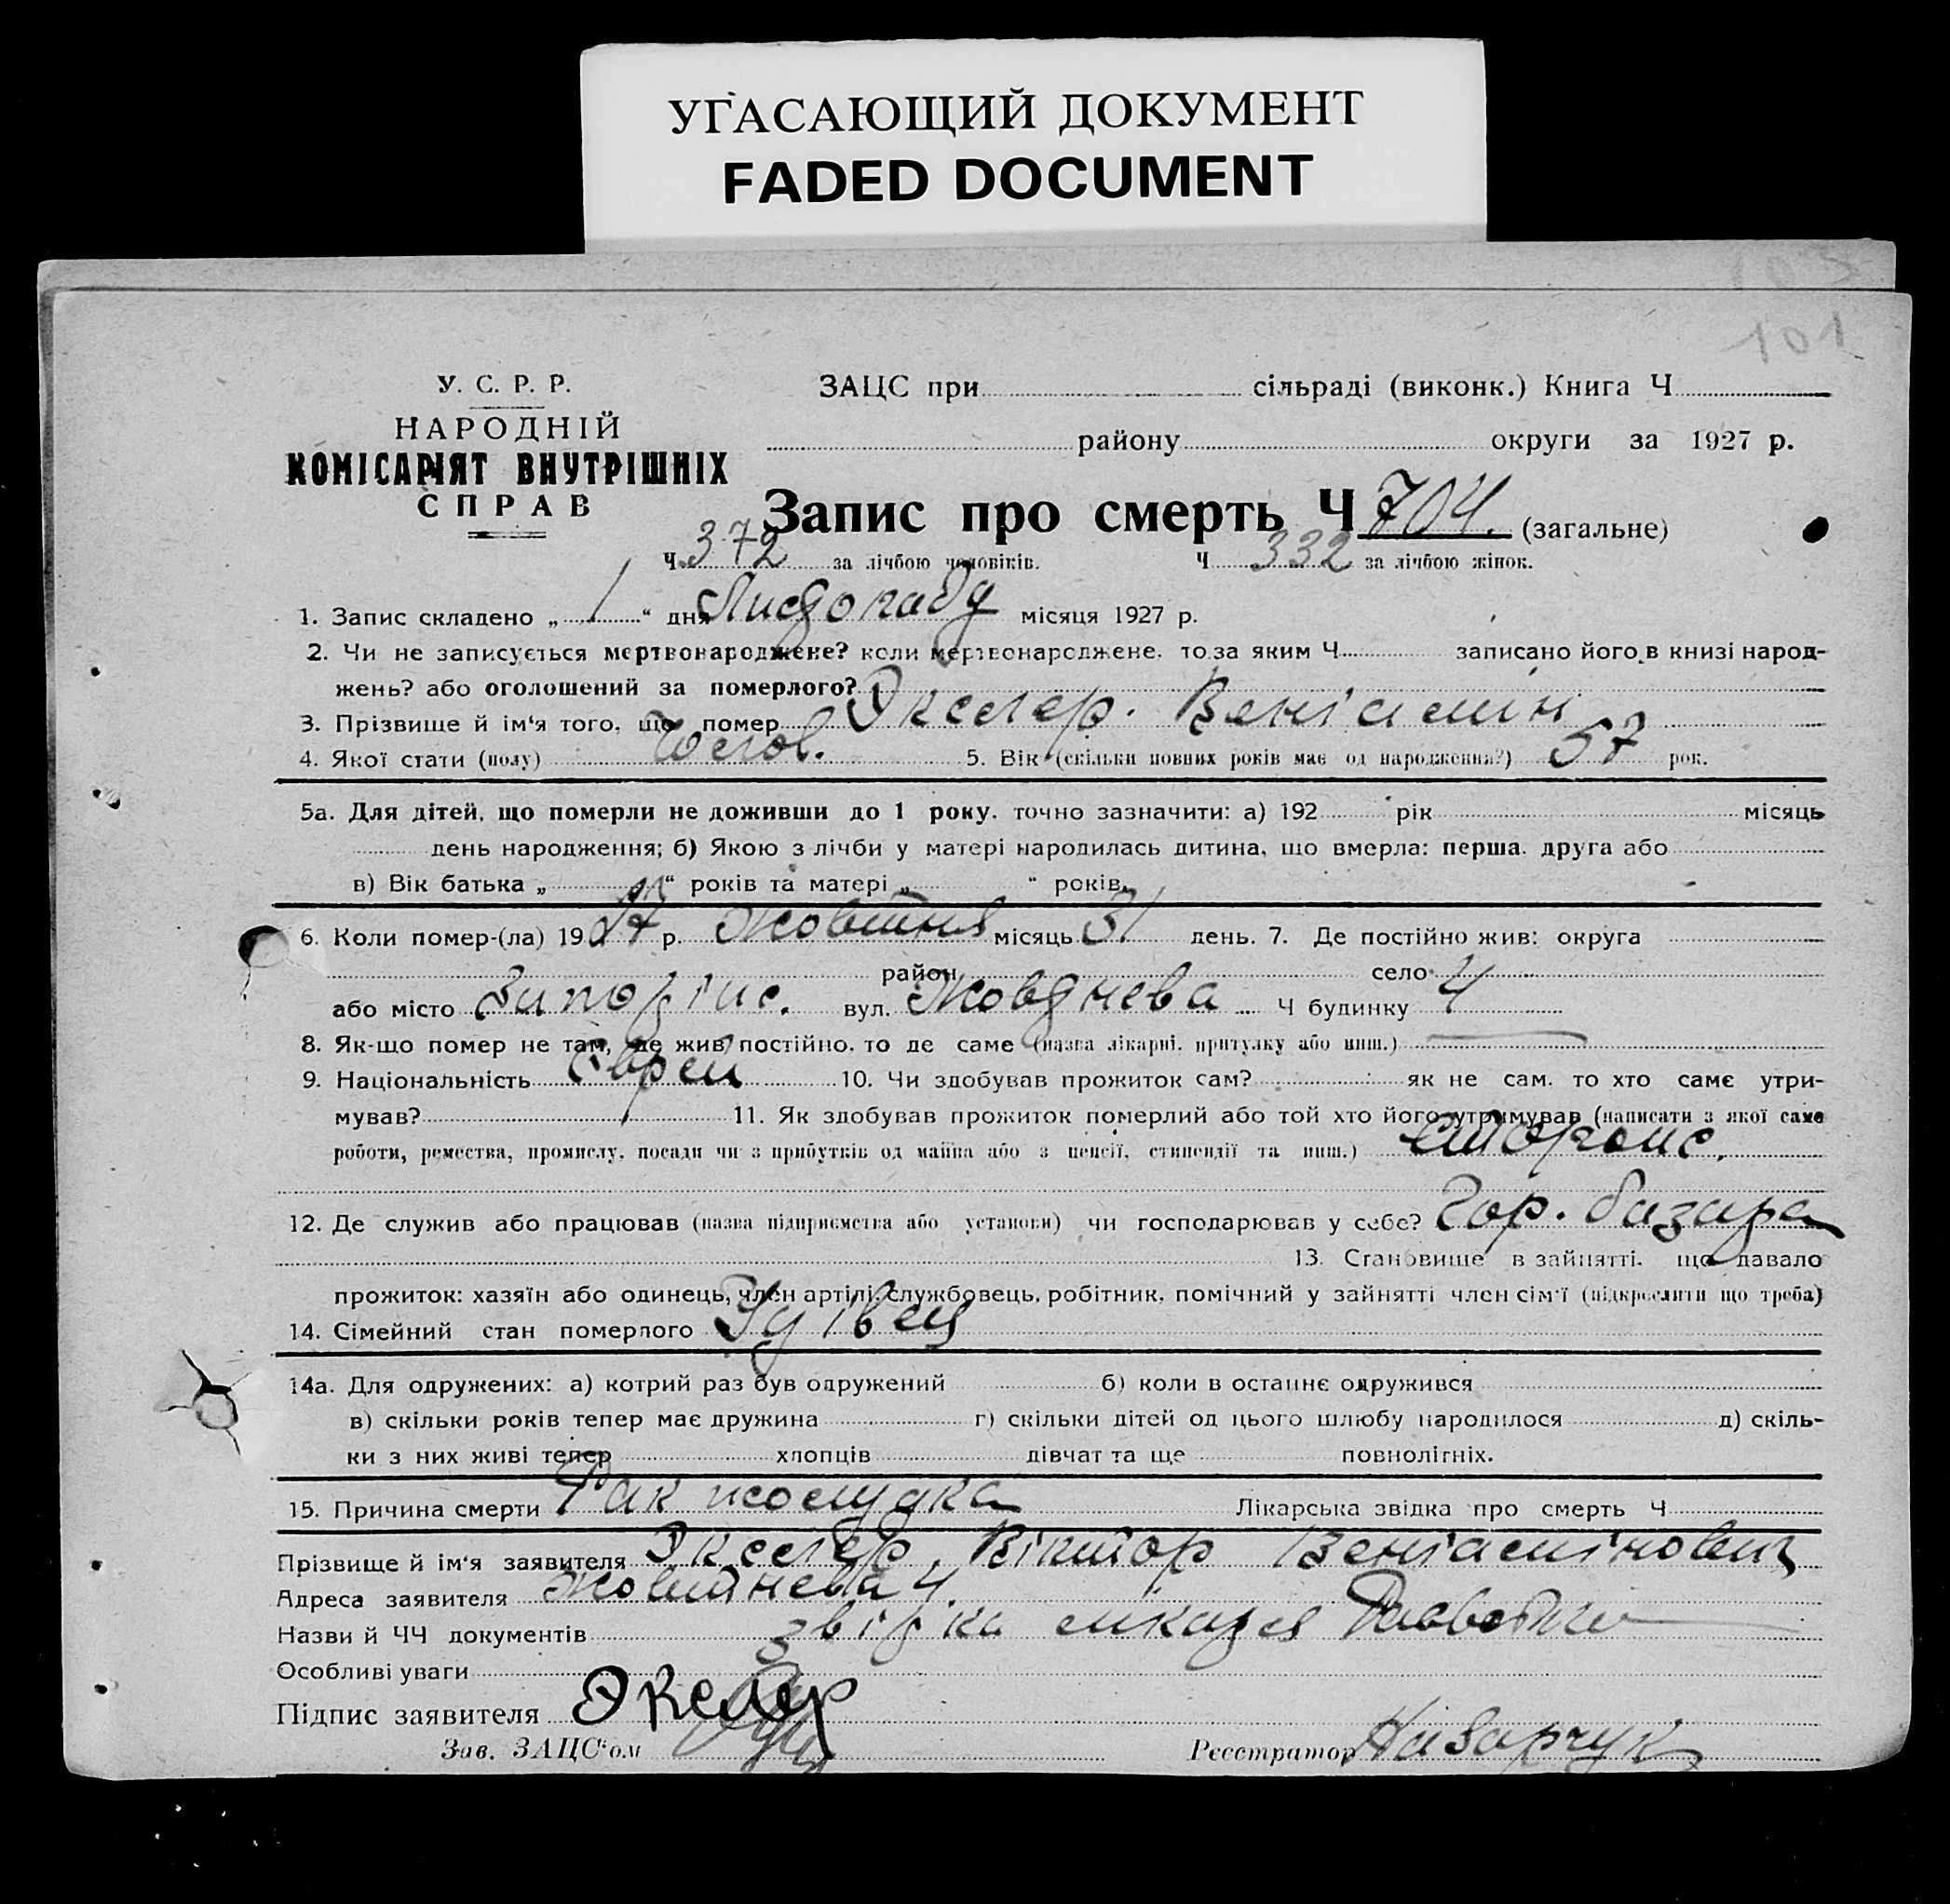 УГАСАЮЩИЙ ДОКУМЕНТ
FADED DOCUMENT
101
У. С. Р. Р.
НАРОДНІЙ
КОМІСАРІЯТ ВНУТРІШНІХ
СПРАВ
ЗАЦС при сільраді (виконк.) Книга Ч
району округи за 1927 р.
Запис про смерть Ч 704. (загальне)
Ч 372 за лічбою чоловіків. Ч 332 за лічбою жінок.
1. Запис складено „ 1 “ дня Листопаду місяця 1927 р.
2. Чи не записується мертвонароджене? коли мертвонароджене, то за яким Ч записано його в книзі народ-
жень? або оголошений за померлого?
3. Прізвище й ім'я того, що помер Экслер. Веніамін
4. Якої стати (полу) Чолов. 5. Вік (скільки повних років має од народження?) 57 рок.
5а. Для дітей, що померли не доживши до 1 року, точно зазначити: а) 192 рік місяць
день народження; б) Якою з лічби у матері народилась дитина, що вмерла: перша, друга або
в) Вік батька „ “ років та матері „ “ років.
6. Коли помер-(ла) 1927 р. Жовтня місяць 31 день. 7. Де постійно жив: округа
район село
або місто Запоріж. вул. Жовтнева Ч будинку 4
8. Як-що помер не там, де жив постійно, то де саме (назва лікарні, притулку або инш.)
9. Національність єврей 10. Чи здобував прожиток сам? як не сам, то хто саме утри-
мував? 11. Як здобував прожиток померлий або той хто його утримував (написати з якої саме
роботи, ремества, промислу, посади чи з прибутків од майна або з пенсії, стипендії та инш.) сторож.
12. Де служив або працював (назва підприємства або установи) чи господарював у себе? Гор. базара
13. Становище в зайнятті, що давало
прожиток: хазяїн або одинець, член артілі, службовець, робітник, помічний у зайнятті член сім'ї (підкреслити що треба)
14. Сімейний стан померлого Удівец
14а. Для одружених: а) котрий раз був одружений б) коли в останнє одружився
в) скільки років тепер має дружина г) скільки дітей од цього шлюбу народилося д) скіль-
ки з них живі тепер хлопців дівчат та ще повнолітніх.
15. Причина смерти Рак желудка Лікарська звідка про смерть Ч
Прізвище й ім'я заявителя Экслер, Віктор Веніамінович
Адреса заявителя Жовтнева 4
Назви й ЧЧ документів звідка лікаря
Особливі уваги
Підпис заявителя Экслер
Зав. ЗАЦС'ом
Реєстратор Назарчук